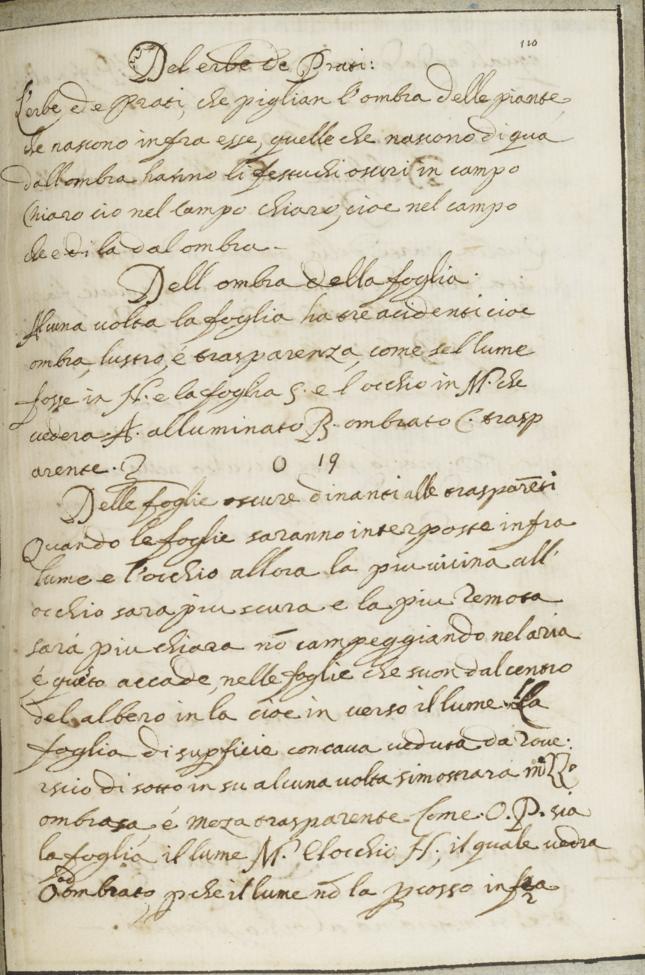 110
Del erbe de Prati:
L'erbe, de Prati, che piglian l'ombra delle piante,
che nascono infra esse, quelle che nascono di qua
dall'ombra hanno li festuchi oscuri in campo
chiaro cio nel campo chiaro, cioe nel campo
che e di la dal ombra.-
Dell ombra della foglia.
Alcuna volta la foglia ha tre acidenti cioe
ombra, lustro, é trasparenza, come se'l lume
fosse in N. e la foglia S. e l'occhio in M. che
vedera A. alluminato B. ombrato C. trasp
arente.
O 19
Delle foglie oscure dinanti alle trasparēti
Quando le foglie saranno interposte infra
lume e l'occhio allora la piu vicina all'
occhio sara piu scura e la piu remota
sará piu chiara nō campeggiando nel aria
é questo accade, nelle foglie che suon dal centro
del albero in la cioe in verso il lume. La
foglia di supficie concava veduta da rove:
rscio di sotto in su alcuna volta si mostrara
ombrasa, é meza trasparente. Come. O. P. sia
la foglia il lume M. e locchio N., il quale vedra
O ombrato, pche il lume nō la pcosso infra